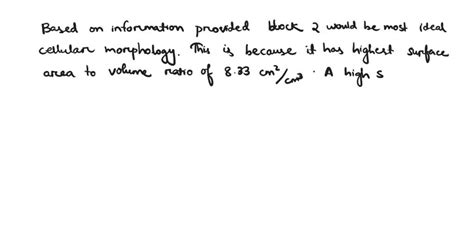 Based on information provided block 2 would be most ideal
cellular morphology. This is because it has highest surface
area to volume ratio of 8.33 cm²/cm³. A high s